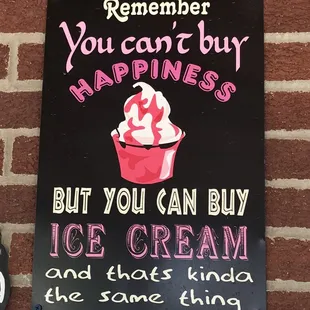 Remember
You can't buy
HAPPINESS
BUT YOU CAN BUY
ICE CREAM
and thats kinda
the same thing